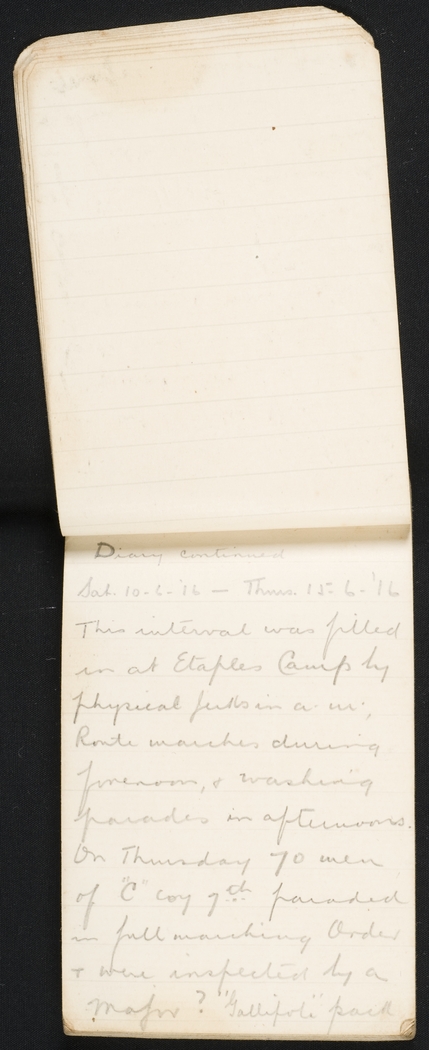 Diary continued
Sat. 10-6-'16 — Thurs. 15-6-'16
This interval was filled
in at Etaples Camp by
physical jerks in a.m.,
Route marches during
forenoon, & washing
parades in afternoons.
On Thursday 70 men
of "C" coy 7th paraded
in full marching Order
+ were inspected by a
Major? "Gallipoli" pack